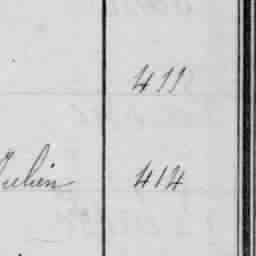 411
Julien 414